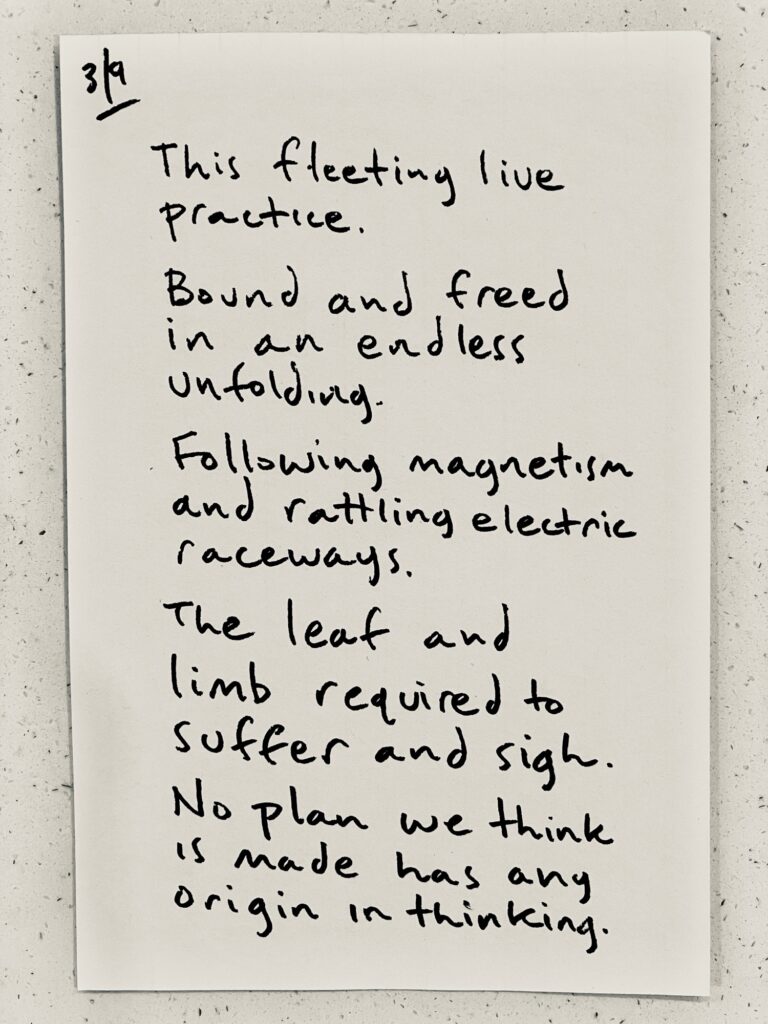 3/9
This fleeting live
practice.
Bound and freed
in an endless
unfolding.
Following magnetism
and rattling electric
raceways.
The leaf and
limb required to
suffer and sigh.
No plan we think
is made has any
origin in thinking.